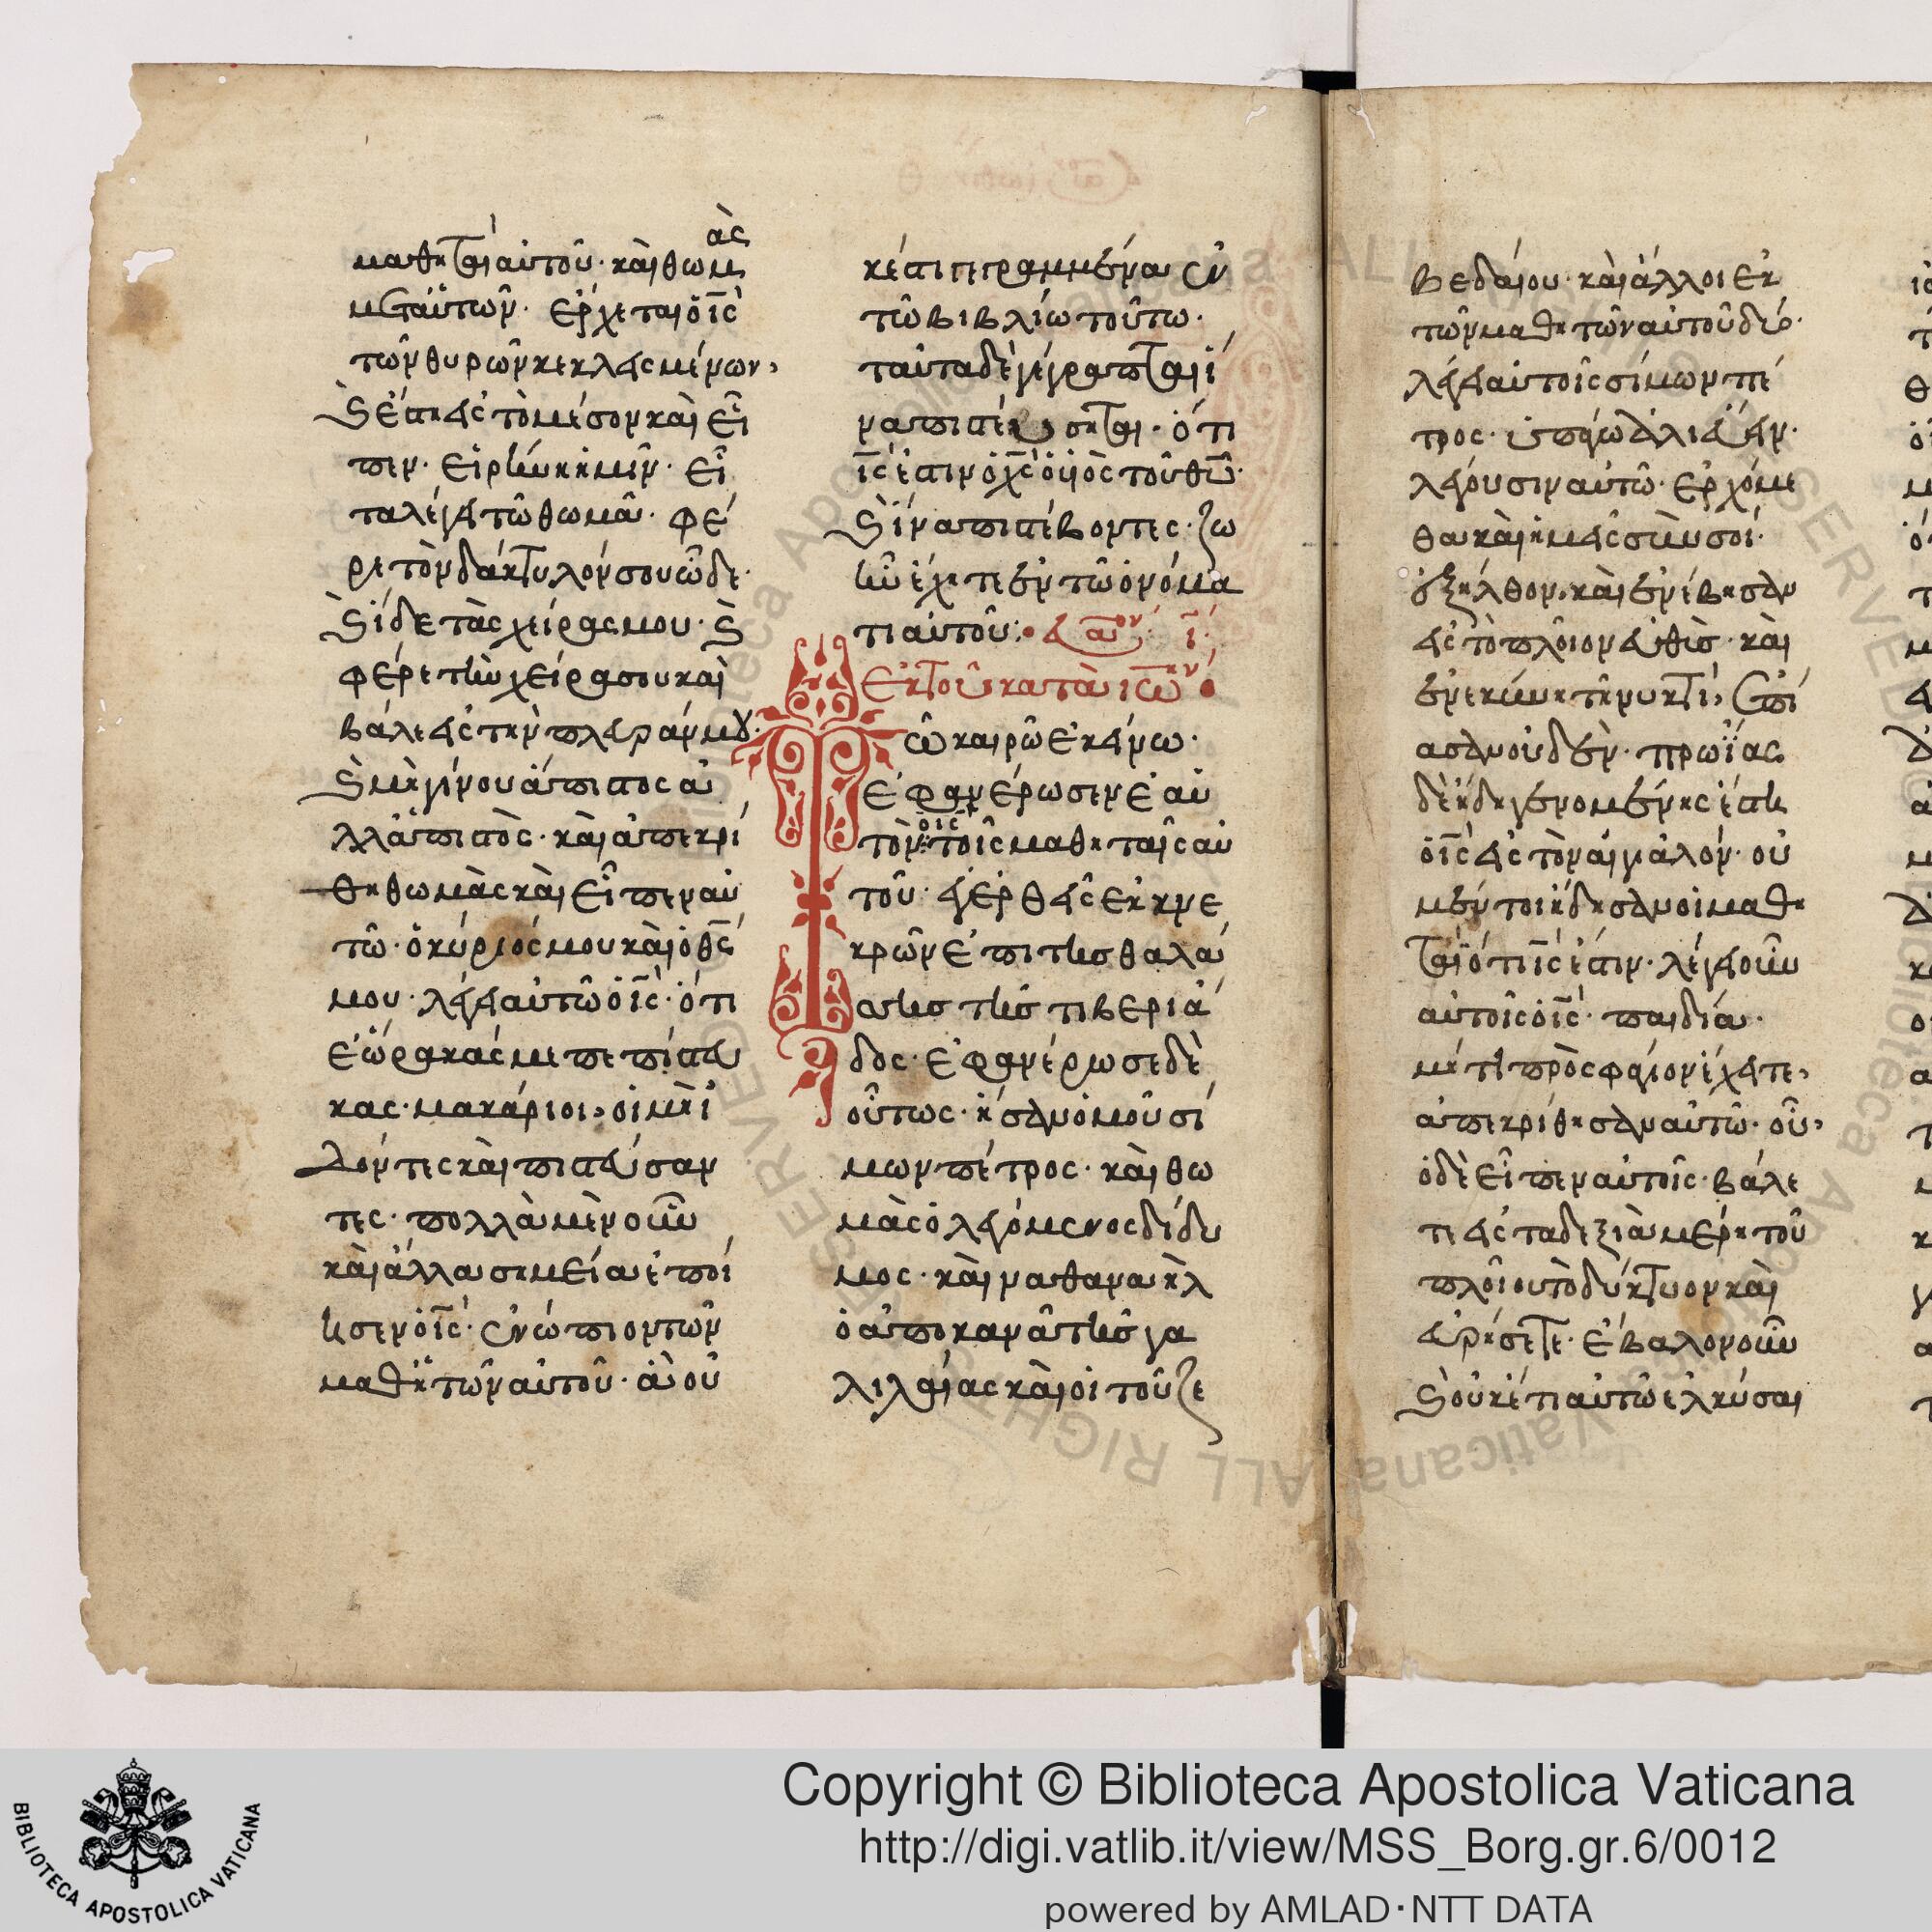 μαθηταὶ αὐτοῦ· καὶ θωμὰς
μετ' αὐτῶν· ἔρχεται ὁ ις
τῶν θυρῶν κεκλεισμένων,
καὶ ἔστη εἰς τὸ μέσον καὶ εἶ
πεν· εἰρήνη ὑμῖν· εἶ
τα λέγει τῶ θωμᾶ· φέ
ρε τὸν δάκτυλόν σου ὧδε·
καὶ ἴδε τὰς χεῖρας μου· καὶ
φέρε τὴν χεῖρα σου καὶ
βάλε εἰς τὴν πλευράν μου·
καὶ μὴ γίνου ἄπιστος ἀ
λλὰ πιστὸς· καὶ ἀπεκρί
θη θωμὰς καὶ εἶπεν αὐ
τῶ· ὁ κύριός μου καὶ ὁ θς
μου· λέγει αὐτῶ ὁ ις· ὅτι
ἑώρακάς με πεπίστευ
κας· μακάριοι, οἱ μὴ ἰ
δόντες καὶ πιστεύσαν
τες· πολλὰ μὲν οὖν
καὶ ἄλλα σημεῖα ἐποί
ησεν ὁ ις· ἐνώπιον τῶν
μαθητῶν αὐτοῦ· ἃ οὐ
κ ἔστι γεγραμμένα ἐν
τῶ βιβλίω τούτω·
ταῦτα δὲ γέγραπται ἵ
να πιστεύσηται· ὅτι
ις ἐστιν ὁ χς ὁ υἱὸς τοῦ θυ·
καὶ ἵνα πιστεύοντες· ζω
ὴν ἔχητε ἐν τῶ ὀνόμα
τι αὐτοῦ:
ἐκ τοῦ κατὰ ιω
ῶ καιρῶ ἐκείνω·
ἐφανέρωσεν ἑαυ
τὸν ὁ ις τοῖς μαθηταῖς αὐ
τοῦ· ἐγερθεὶς ἐκ νε
κρῶν ἐπὶ τῆς θαλά
σσης τῆς τιβεριά
δος· ἐφανέρωσε δὲ
οὕτως· ἦσαν ὁμοῦ σί
μων πέτρος· καὶ θω
μὰς ὁ λεγόμενος δίδυ
μος· καὶ ναθαναὴλ
ὁ ἀπὸ κανᾶ τῆς γα
λιλαίας καὶ οἱ τοῦ ζε
βεδαίου· καὶ ἄλλοι ἐκ
τῶν μαθητῶν αὐτοῦ δύο·
λέγει αὐτοῖς σίμων πέ
τρος· ὑπάγω ἁλιεύειν·
λέγουσιν αὐτῶ· ἐρχόμε
θα καὶ ἡμεῖς σὺν σοί·
ἐξῆλθον, καὶ ἐνέβησαν
εἰς τὸ πλοῖον εὐθὺς· καὶ
ἐν ἐκείνη τῆ νυκτὶ, ἐπί
ασαν οὐδέν· πρωΐας
δὲ ἤδη γενομένης ἔστη
ὁ ις εἰς τὸν αἰγιαλόν· οὐ
μέντοι ἤδησαν οἱ μαθη
ταὶ ὅτι ις ἐστιν· λέγει οὖν
αὐτοῖς ὁ ις· παιδία·
μή τι πρὸς φάγιον ἔχετε,
ἀπεκρίθησαν αὐτῶ· οὔ,
ὁ δὲ εἶπεν αὐτοῖς· βάλε
τε εἰς τὰ δεξιὰ μέρη τοῦ
πλοίου τὸ δύκτυον καὶ
εὑρήσετε· ἔβαλον οὖν
καὶ οὐκέτι αὐτὸ ἑλκύσαι
BIBLIOTECA APOSTOLICA VATICANA
Copyright © Biblioteca Apostolica Vaticana
http://digi.vatlib.it/view/MSS_Borg.gr.6/0012
powered by AMLAD·NTT DATA